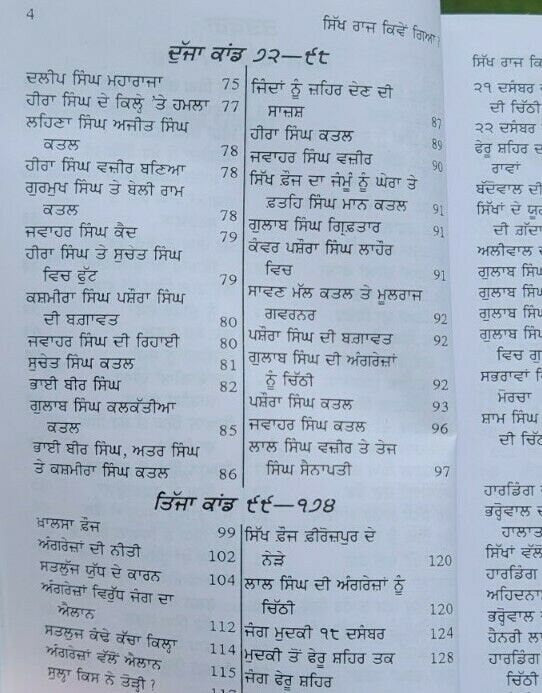 4
ਸਿੱਖ ਰਾਜ ਕਿਵੇਂ ਗਿਆ ?
ਦੂੱਜਾ ਕਾਂਡ ੭੨—੯੮
ਦਲੀਪ ਸਿੰਘ ਮਹਾਰਾਜਾ 75
ਹੀਰਾ ਸਿੰਘ ਦੇ ਕਿਲ੍ਹੇ 'ਤੇ ਹਮਲਾ 77
ਲਹਿਣਾ ਸਿੰਘ ਅਜੀਤ ਸਿੰਘ
ਕਤਲ 78
ਹੀਰਾ ਸਿੰਘ ਵਜ਼ੀਰ ਬਣਿਆ 78
ਗੁਰਮੁਖ ਸਿੰਘ ਤੇ ਬੇਲੀ ਰਾਮ
ਕਤਲ 78
ਜਵਾਹਰ ਸਿੰਘ ਕੈਦ 79
ਹੀਰਾ ਸਿੰਘ ਤੇ ਸੁਚੇਤ ਸਿੰਘ
ਵਿਚ ਫੁੱਟ 79
ਕਸ਼ਮੀਰਾ ਸਿੰਘ ਪਸ਼ੌਰਾ ਸਿੰਘ
ਦੀ ਬਗ਼ਾਵਤ 80
ਜਵਾਹਰ ਸਿੰਘ ਦੀ ਰਿਹਾਈ 80
ਸੁਚੇਤ ਸਿੰਘ ਕਤਲ 81
ਭਾਈ ਬੀਰ ਸਿੰਘ 82
ਗੁਲਾਬ ਸਿੰਘ ਕਲਕੱਤੀਆ
ਕਤਲ 85
ਭਾਈ ਬੀਰ ਸਿੰਘ, ਅਤਰ ਸਿੰਘ
ਤੇ ਕਸ਼ਮੀਰਾ ਸਿੰਘ ਕਤਲ 86
ਜਿੰਦਾਂ ਨੂੰ ਜ਼ਹਿਰ ਦੇਣ ਦੀ
ਸਾਜ਼ਸ਼ 87
ਹੀਰਾ ਸਿੰਘ ਕਤਲ 89
ਜਵਾਹਰ ਸਿੰਘ ਵਜ਼ੀਰ 90
ਸਿੱਖ ਫ਼ੌਜ ਦਾ ਜੰਮੂੰ ਨੂੰ ਘੇਰਾ ਤੇ
ਫ਼ਤਹਿ ਸਿੰਘ ਮਾਨ ਕਤਲ 91
ਗੁਲਾਬ ਸਿੰਘ ਗ੍ਰਿਫ਼ਤਾਰ 91
ਕੰਵਰ ਪਸ਼ੌਰਾ ਸਿੰਘ ਲਾਹੌਰ
ਵਿਚ 91
ਸਾਵਣ ਮੱਲ ਕਤਲ ਤੇ ਮੂਲਰਾਜ
ਗਵਰਨਰ 92
ਪਸ਼ੌਰਾ ਸਿੰਘ ਦੀ ਬਗ਼ਾਵਤ 92
ਗੁਲਾਬ ਸਿੰਘ ਦੀ ਅੰਗਰੇਜ਼ਾਂ
ਨੂੰ ਚਿੱਠੀ 92
ਪਸ਼ੌਰਾ ਸਿੰਘ ਕਤਲ 93
ਜਵਾਹਰ ਸਿੰਘ ਕਤਲ 96
ਲਾਲ ਸਿੰਘ ਵਜ਼ੀਰ ਤੇ ਤੇਜ
ਸਿੰਘ ਸੈਨਾਪਤੀ 97
ਤਿੱਜਾ ਕਾਂਡ ੯੯—੧੭੪
ਖ਼ਾਲਸਾ ਫ਼ੌਜ 99
ਅੰਗਰੇਜ਼ਾਂ ਦੀ ਨੀਤੀ 102
ਸਤਲੁਜ ਯੁੱਧ ਦੇ ਕਾਰਨ 104
ਅੰਗਰੇਜ਼ਾਂ ਵਿਰੁੱਧ ਜੰਗ ਦਾ
ਐਲਾਨ 112
ਸਤਲੁਜ ਕੰਢੇ ਕੱਚਾ ਕਿਲ੍ਹਾ 114
ਅੰਗਰੇਜ਼ਾਂ ਵੱਲੋਂ ਐਲਾਨ 115
ਸੁਲ੍ਹਾ ਕਿਸ ਨੇ ਤੋੜੀ ?
ਸਿੱਖ ਫ਼ੌਜ ਫ਼ੀਰੋਜ਼ਪੁਰ ਦੇ
ਨੇੜੇ 120
ਲਾਲ ਸਿੰਘ ਦੀ ਅੰਗਰੇਜ਼ਾਂ ਨੂੰ
ਚਿੱਠੀ 120
ਜੰਗ ਮੁਦਕੀ ੧੮ ਦਸੰਬਰ 124
ਮੁਦਕੀ ਤੋਂ ਫੇਰੂ ਸ਼ਹਿਰ ਤਕ 128
ਜੰਗ ਫੇਰੂ ਸ਼ਹਿਰ
ਸਿੱਖ ਰਾਜ
੨੧ ਦਸੰਬਰ
ਦੀ ਚਿੱਠੀ
੨੨ ਦਸੰਬਰ
ਫੇਰੂ ਸ਼ਹਿਰ
ਰਾਵਾਂ
ਬੱਦੋਵਾਲ ਦੀ
ਸਿੱਖਾਂ ਦੇ
ਦੀ
ਅਲੀਵਾਲ
ਗੁਲਾਬ ਸਿੰਘ
ਗੁਲਾਬ
ਗੁਲਾਬ
ਗੁਲਾਬ
ਵਿਚ
ਸਭਰਾਵਾਂ
ਮੋਰਚਾ
ਸ਼ਾਮ ਸਿੰਘ
ਦੀ
ਹਾਰਡਿੰਗ
ਭਰੋਵਾਲ
ਸਿੱਖਾਂ ਵੱਲੋਂ
ਹਾਰਡਿੰਗ
ਅਹਿਦਨਾ
ਭਰੋਵਾਲ
ਹੈਨਰੀ
ਹਾਰਡਿੰਗ
ਚਿੱਠੀ